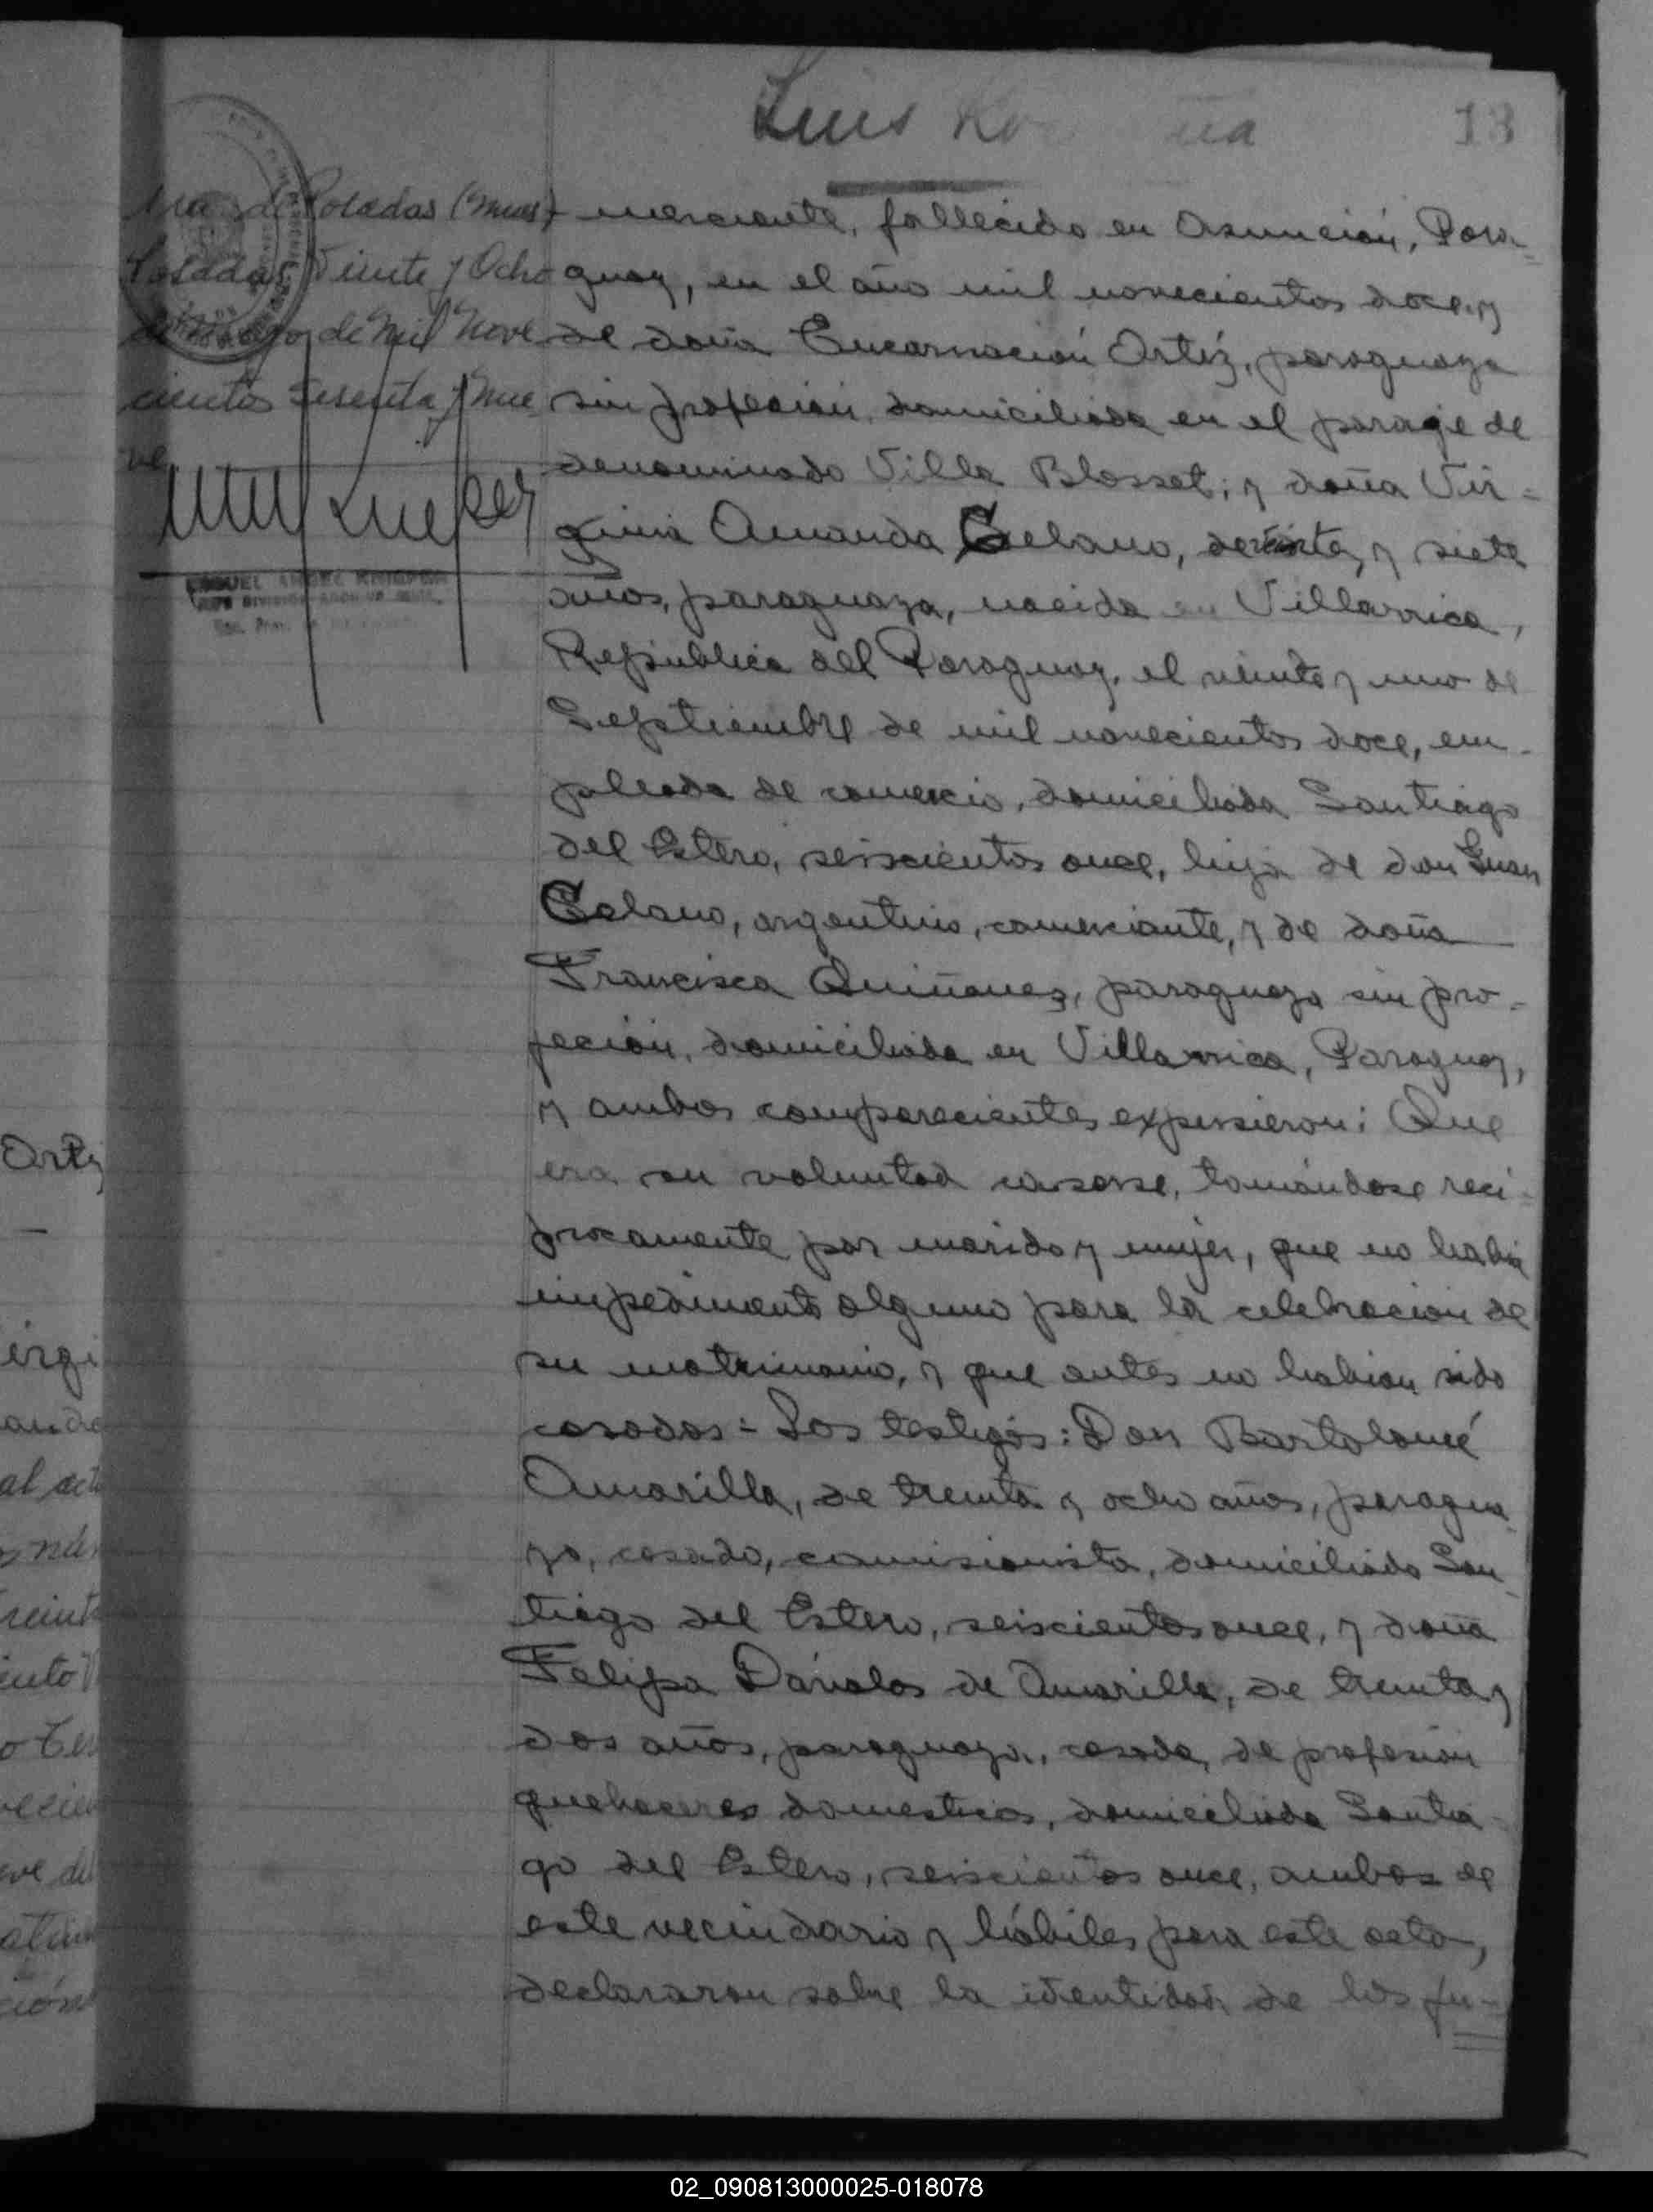 Luis
13
de Posadas
Posadas, Veinte y Ocho
de de Mil Nove
cientos sesenta y nue
ve
merciante, fallecido en Asunción, Para-
guay, en el año mil novecientos doce, y
de doña Encarnación Ortíz, paraguaya
sin profesión, domiciliada en el paraje de
denominado Villa Blosset; y doña Vir-
ginia Amanda Celano, de veinte y siete
años, paraguaya, nacida en Villarrica,
República del Paraguay, el veinte y uno de
Septiembre de mil novecientos doce, em-
pleada de comercio, domiciliada Santiago
del Estero, seiscientos once, hija de don Juan
Celano, argentino, comerciante, y de doña
Francisca Quiñonez, paraguaya sin pro-
feción, domiciliada en Villarrica, Paraguay,
y ambos comparecientes expusieron: Que
era su voluntad casarse, tomándose reci-
procamente por marido y mujer, que no habia
impedimento alguno para la celebracion de
su matrimonio, y que antes no habian sido
casados = Los testigos: Don Bartolomé
Amarilla, de treinta y ocho años, paragua-
yo, casado, comisionista, domiciliado San-
tiago del Estero, seiscientos once, y doña
Felipa Dávalos de Amarilla, de treinta y
dos años, paraguaya, casada, de profesión
quehaceres domesticos, domiciliada Santia-
go del Estero, seiscientos once, ambos de
este vecindario y hábiles para este acto,
declararon sobre la identidad de los fu-
Orti
irgi
al act
02_090813000025-018078